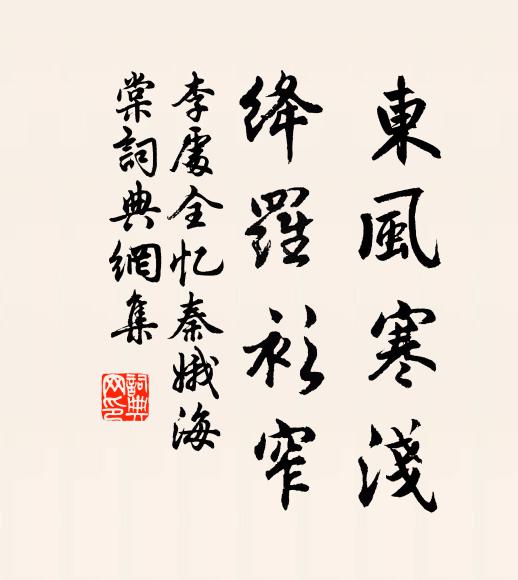 東風寒淺
絳羅衫窄
李處全忆秦娥海
棠詞典網集
詞典
网印